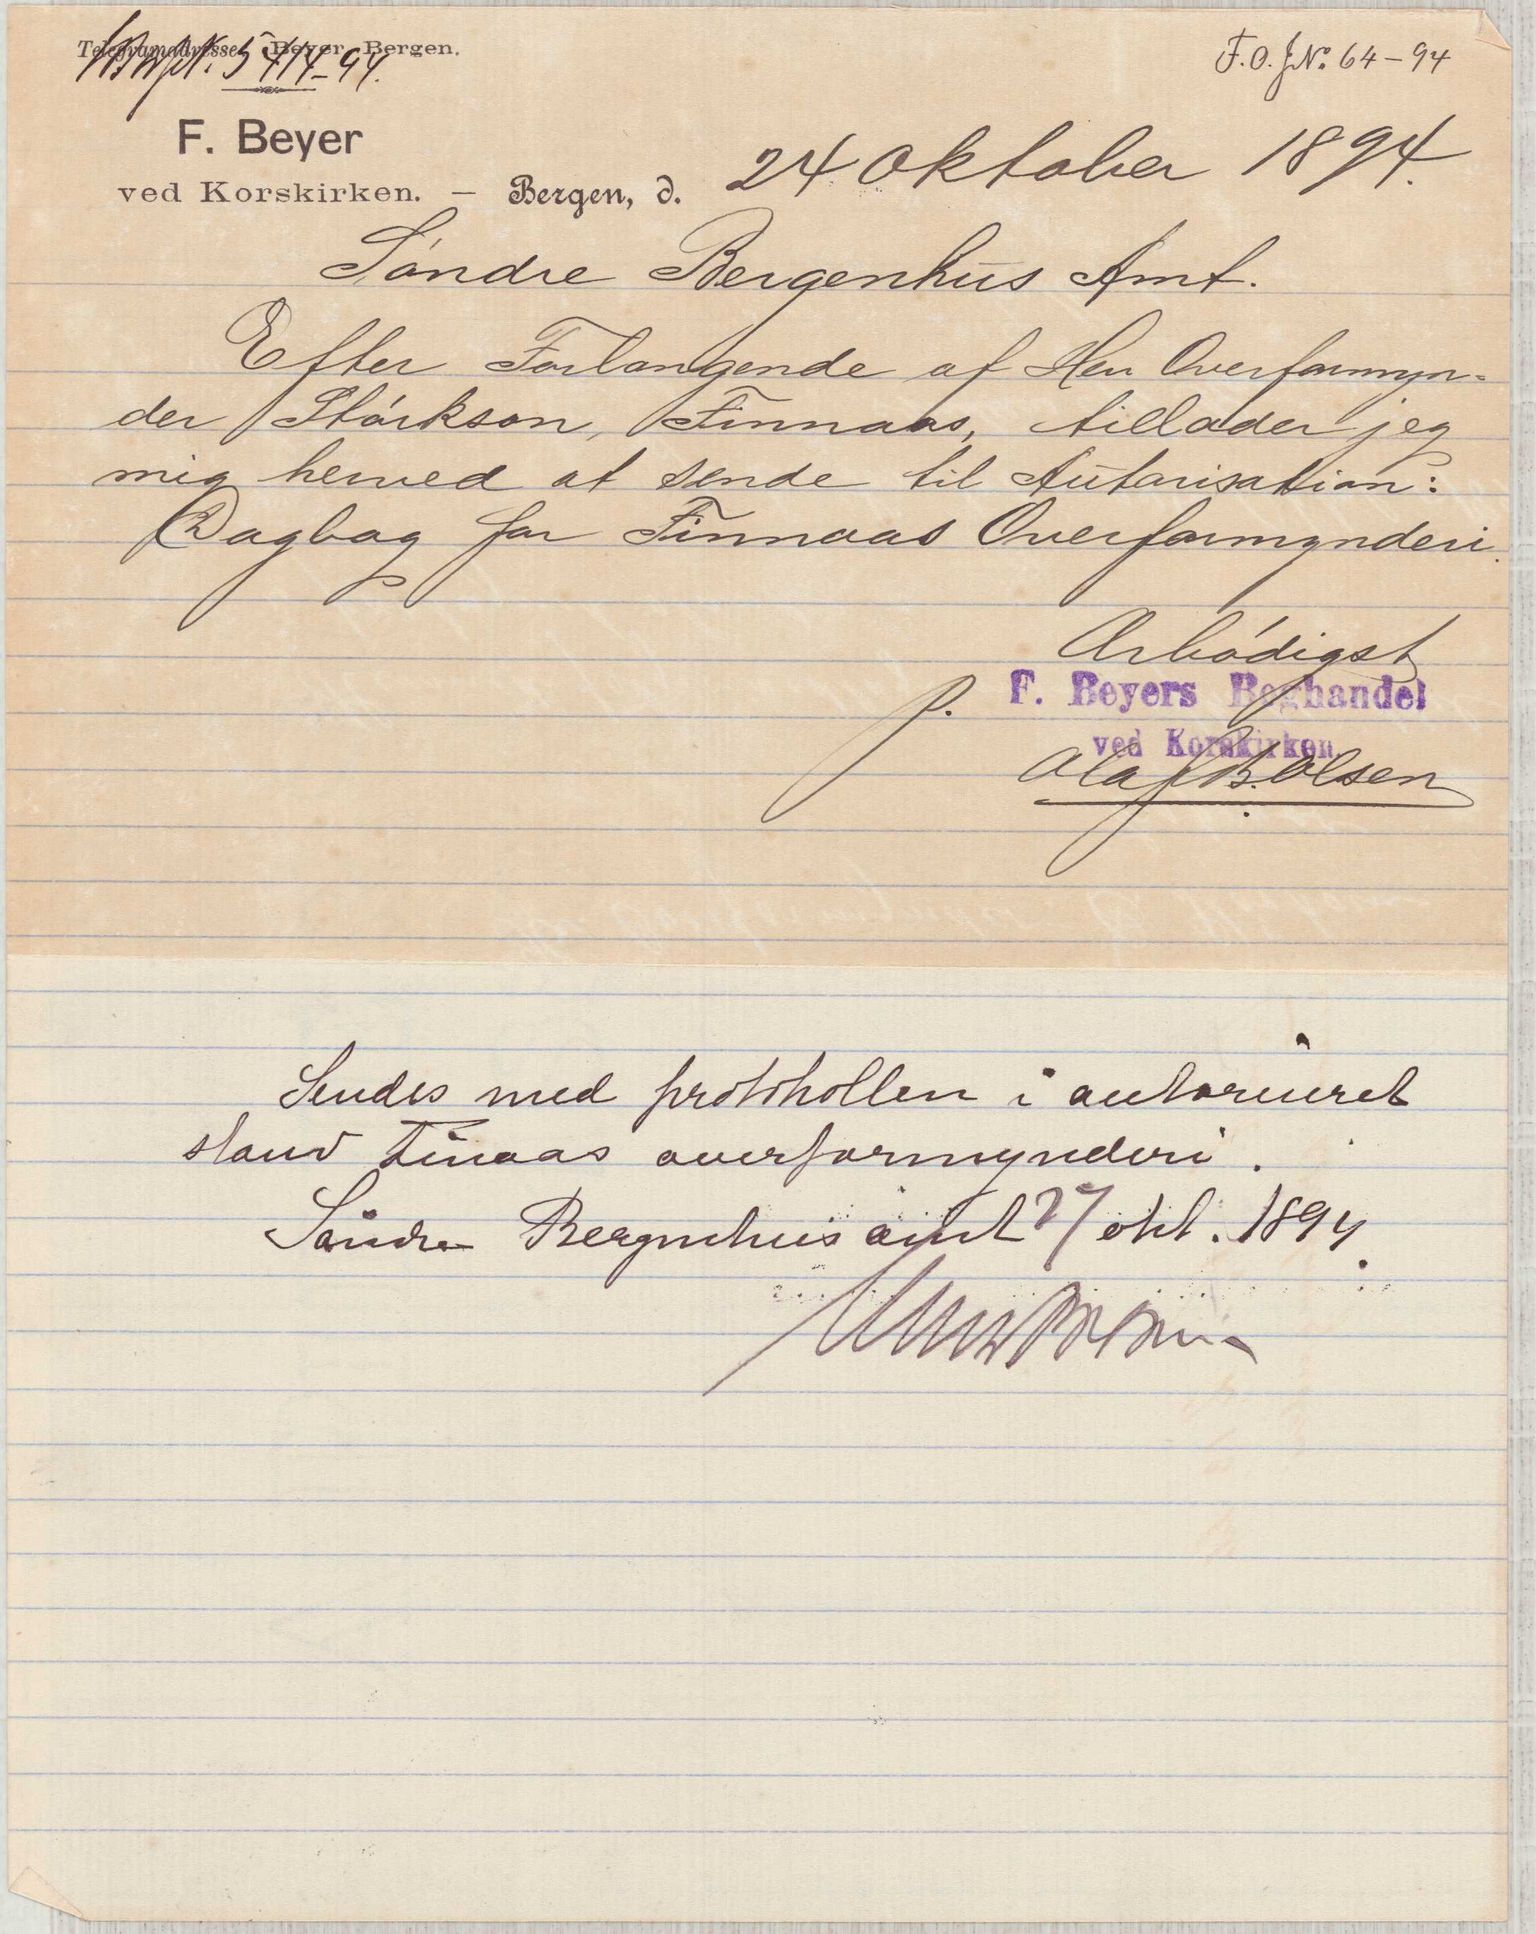 Telegramadresse: Beyer, Bergen.
5414-94.
F.O.J.No. 64-94
F. Beyer
ved Korskirken. — Bergen, d. 24 Oktober 1894.
Söndre Bergenhus Amt.
Efter Forlangende af Herr Overformyn-
der Störkson, Finnaas, tillader jeg
mig herved at sende til Autorisation:
Dagbog for Finnaas Overformynderi.
Arbödigst
p. F. Beyers Boghandel
ved Korskirken.
Olaf B. Olsen
Sendes med protokollen i autoriseret
stand Finaas overformynderi.
Søndre Bergenhus amt 27 okt. 1894